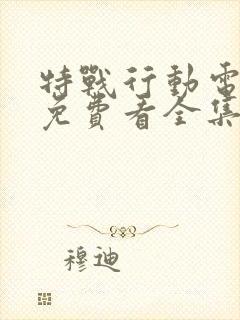 特戰行動電
免費看全集
穆迪